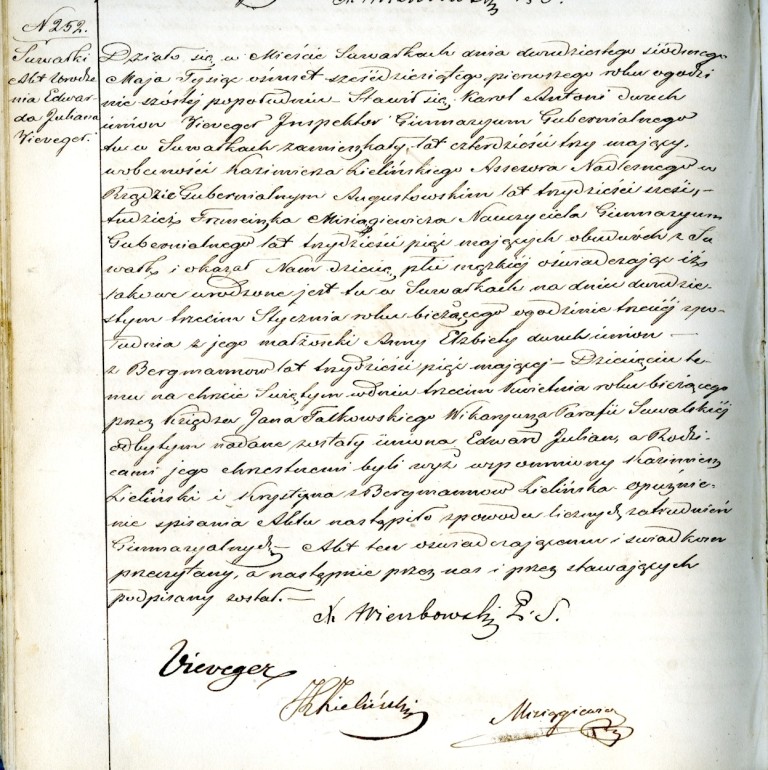 N 252.
Suwałki
Akt Urodze
nia Edwar
da Juliana
Vieveger.
Działo się w Mieście Suwałkach dnia dwudziestego siódmego
Maja Tysiąc ośmset sześćdziesiątego pierwszego roku o godzi
nie szóstej popołudniu. Stawił się Karol Antoni dwuch
imion Vieveger Inspektor Gimnazyum Gubernialnego
tu w Suwałkach zamieszkały, lat czterdzieści trzy mający,
w obecności Kazimierza Zielińskiego Assesora Nadleśnego w
Rządzie Gubernialnym Augustowskim lat trzydzieści sześć,
tudzież Franciszka Misiągiewicza Nauczyciela Gimnazyum
Gubernialnego lat trzydzieści pięć mających obudwóch z Su
wałk i okazał Nam dziecię płci męzkiéj oświadczając iż
takowe urodzone jest tu w Suwałkach na dniu dwudzie-
stym trzecim Stycznia roku bieżącego o godzinie trzeciéj z po-
łudnia z jego małżonki Anny Elżbiety dwuch imion —
z Bergmannow lat trzydzieści pięć mającej — Dziecięciu te-
mu na chrzcie Świętym w dniu trzecim Kwietnia roku bieżącego
przez Księdza Jana Fałkowskiego Wikaryusza Parafii Suwalskiéj
odbytym nadane zostały imiona Edward Julian, a Rodzi-
cami jego chrzestnemi byli wyż wspomniony Kazimierz
Zieliński i Krystyna z Bergmannow Zielińska. Opuźnie-
nie spisania Aktu nastąpiło z powodu licznych zatrudnień
Gimnazyalnych — Akt ten oświadczającemu i świadkom
przeczytany, a następnie przez nas i przez stawających
podpisany został. —
X. Wierzbowski P. S.
Vieveger
K Zieliński
Misiągiewicz